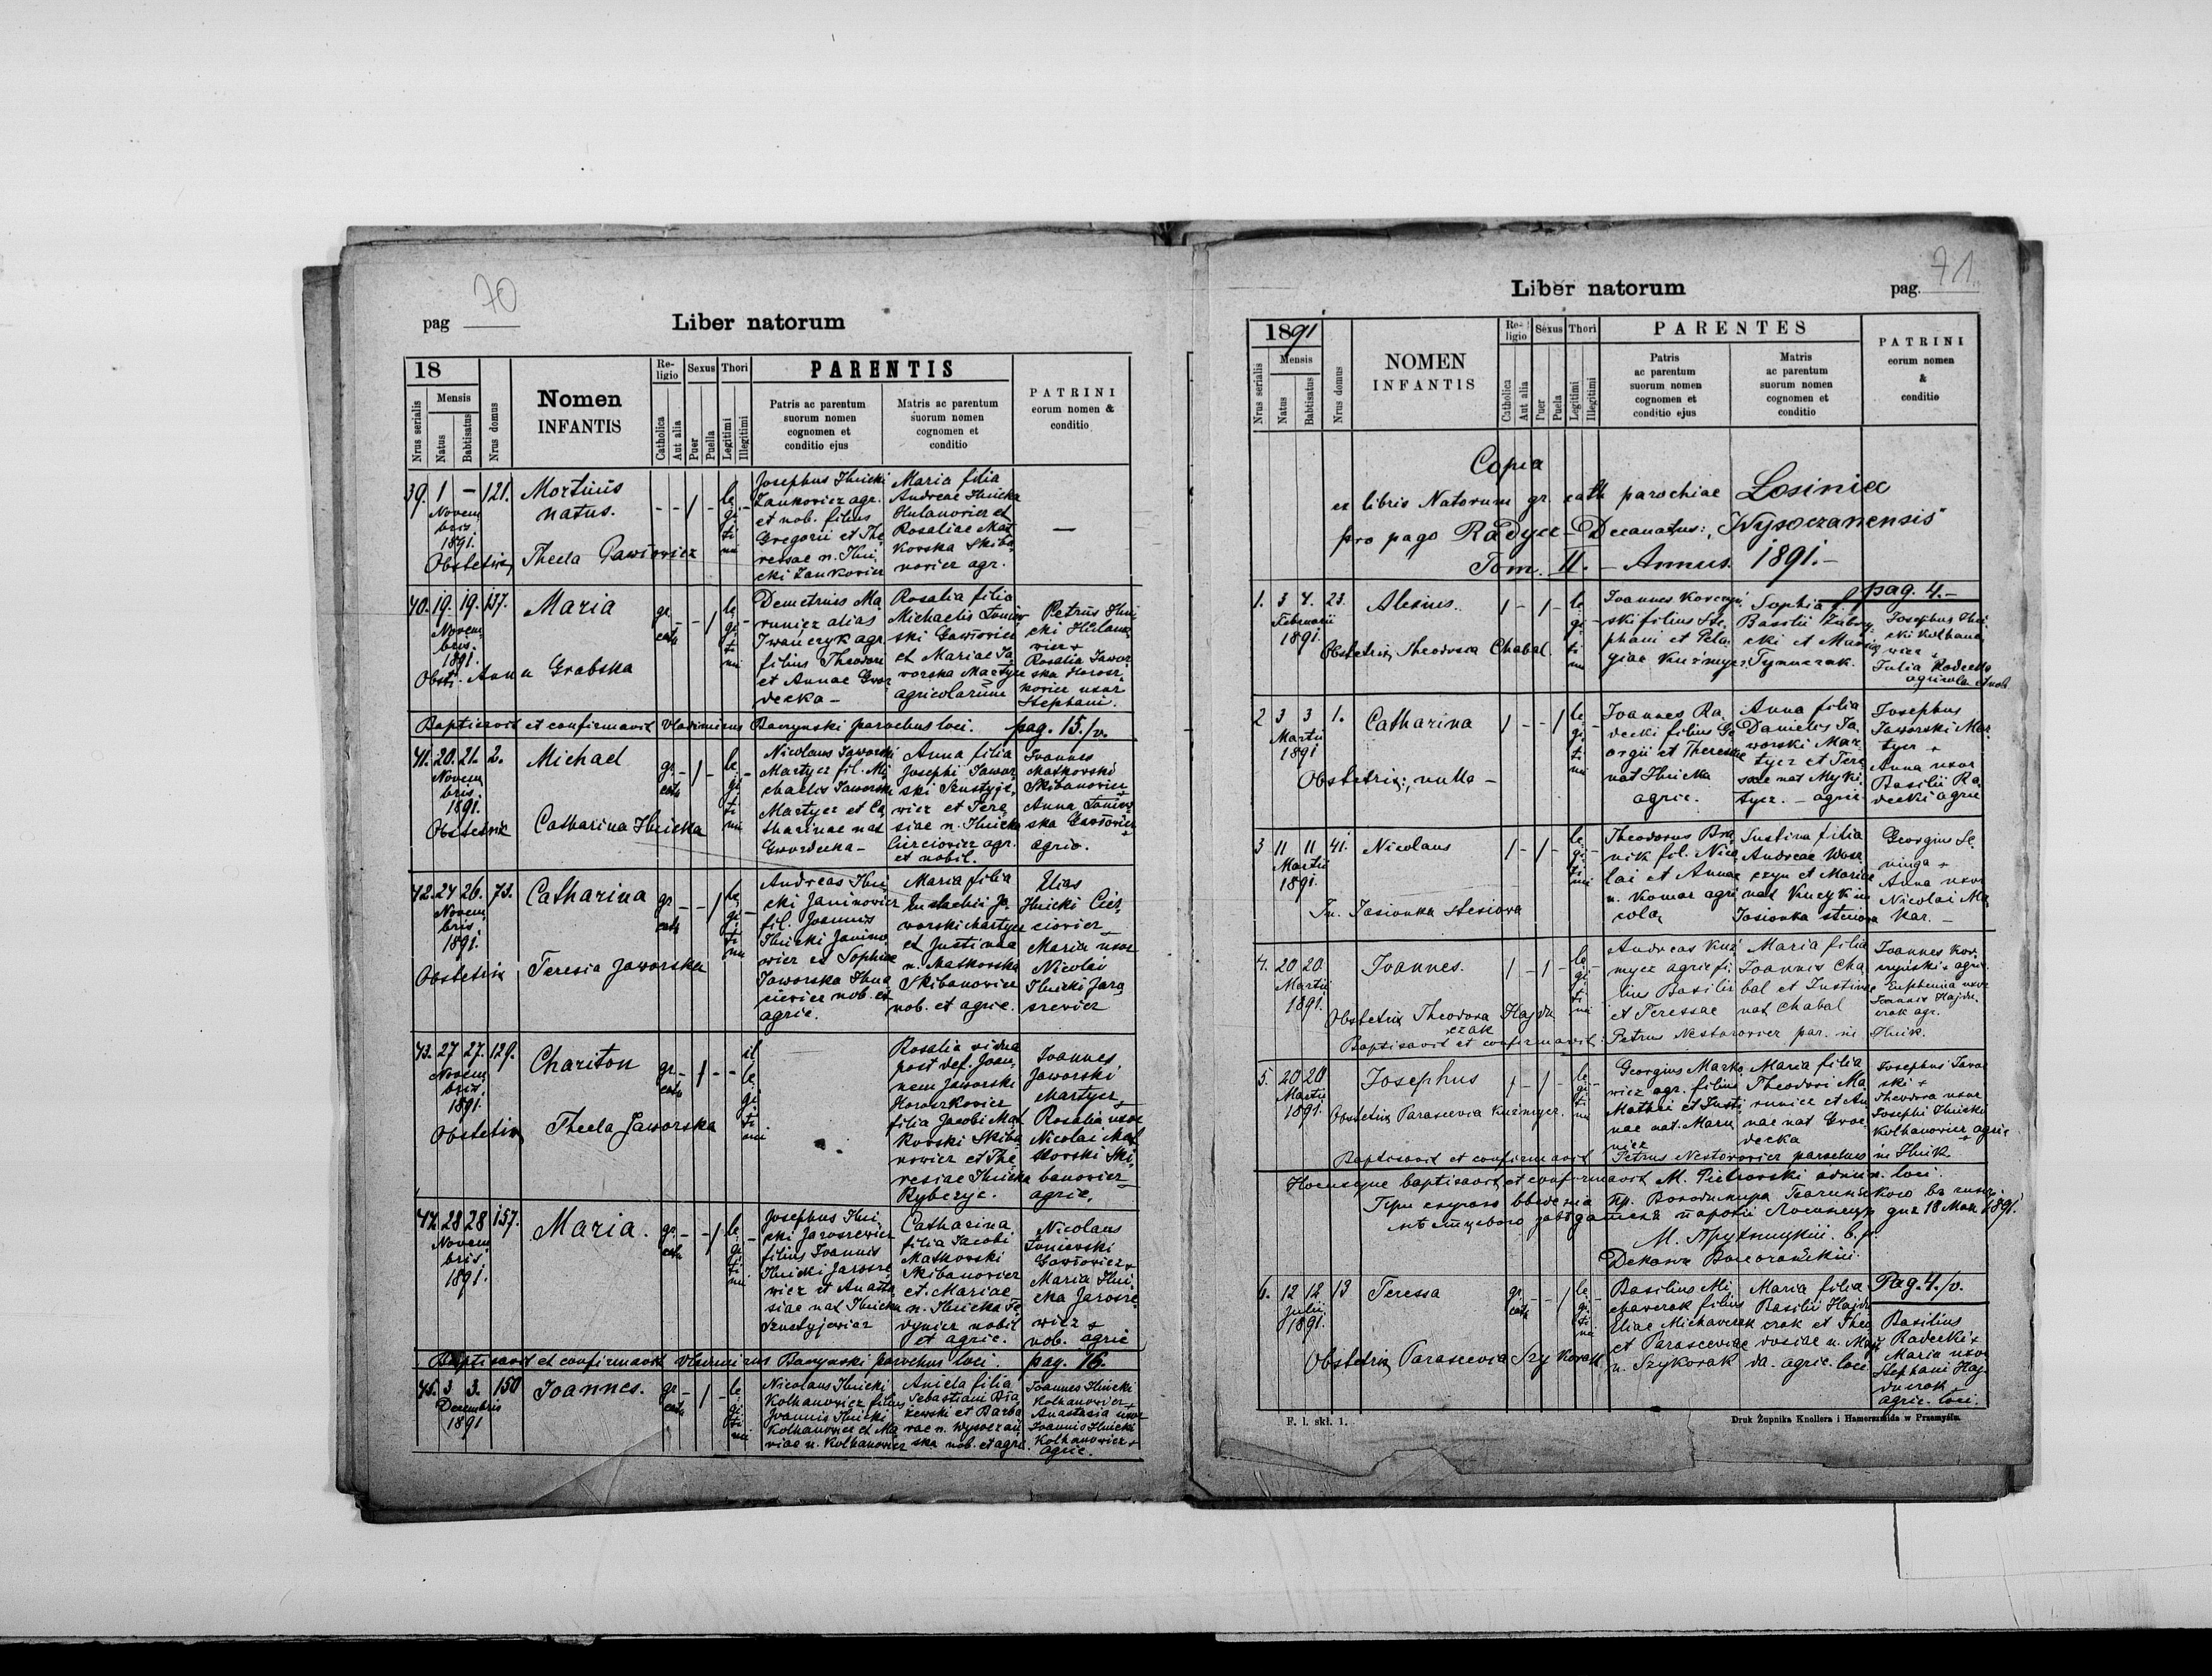 70
pag
Liber natorum
18
Mensis
Nrus serialis
Natus
Babtisatus
Nrus domus
Nomen
INFANTIS
Re-
ligio
Catholica
Aut alia
Sexus
Puer
Puella
Thori
Legitimi
Illegitimi
PARENTIS
Patris ac parentum
suorum nomen
cognomen et
conditio ejus
Matris ac parentum
suorum nomen
cognomen et
conditio
PATRINI
eorum nomen &
conditio
39. 1 – 121.
Novem
bris.
1891.
Mortuus
natus.
Obstetrix Thecla Gawłowicz
– – 1 –
le
gi
ti
mi
Josephus Ilnicki
Zankowicz agr.
et nob. filius
Gregorii et The
ressae n. Ilni
cki Zankowicz
Maria filia
Andreae Ilnicka
Hulanowicz et
Rosaliae Mat
kowska Skiba
nowicz agr.
—
40. 19. 19. 137.
Novem
bris.
1891.
Maria
Obst. Anna Grabska
gr.
cath
– – 1
le
gi
ti
mi
Demetrius Ma
runicz alias
Iwańczyk agr
filius Theodori
et Annae Gwoz
decka –
Rosalia filia
Michaelis Tomiow
ski Gawłowicz
et Mariae Ja
worska Martycz
agricolarum
Petrus Ilni
cki Hulano
wicz +
Rosalia Jawor
ska Horosz
kowicz uxor
Stephani.
Baptisavit et confirmavit Vladimirus Baczynski parochus loci. pag. 15./v.
41. 20. 21. 2.
Novem
bris.
1891.
Michael
Obstetrix Catharina Ilnicka
gr.
cath
– 1 –
le
gi
ti
mi
Nicolaus Jaworski
Martycz fil. Mi
chaelis Jaworski
Martycz et Ca
tharinae nat
Gwozdecka –
Anna filia
Josephi Jawor
ski Szustyje
wicz et Tere
siae n. Ilnicka
Curciowicz agr.
et nobil.
Joannes
Matkowski
Skibanowicz
+
Anna Tomiow
ska Gawłowicz
agric.
42. 24 26. 73.
Novem
bris.
1891.
Catharina
Obstetrix Teresia Jaworska
gr
cath
– – 1
le
gi
ti
mi
Andreas Ilni
cki Janinowicz
fil. Joannis
Ilnicki Janino
wicz et Sophiae
Jaworska Ihna
ciewicz nob. et
agric.
Maria filia
Eustachii Ja
worski Martycz
et Justinaa
n. Matkowska
Skibanowicz
nob. et agric.
Elias
Ilnicki Cur
ciowicz
+
Maria uxor
Nicolai
Ilnicki Jaro
szewicz
43. 27 27. 129.
Novem
bris.
1891.
Chariton
Obstetrix Thecla Jaworska
gr.
cath
– 1 – –
il
le
gi
ti
mi
Rosalia vidua
post def. Joan
nem Jaworski
Horoszkowicz
filia Jacobi Mat
kowski Skiba
nowicz et The
resiae Ilnicka
Rybczyc.
Joannes
Jaworski
Martycz
+
Rosalia uxor
Nicolai Mat
kowski Ski
banowicz
agric.
44. 28 28 157.
Novem
bris.
1891.
Maria.
gr.
cath
– – 1
le
gi
ti
mi
Josephus Ilni
cki Jaroszewicz
filius Joannis
Ilnicki Jarosze
wicz et Anasta
siae nat Ilnicka
Szustyjewicz
Catharina
filia Jacobi
Matkowski
Skibanowicz
et Mariae
n. Ilnicka Fe
dynicz nobil
et agric.
Nicolaus
Tomiowski
Gawłowicz +
Maria Ilni
cka Jarosze
wicz +
nob. agric
Baptisavit et confirmavit Vladimirus Baczynski parochus loci. pag. 16.
45. 3 3. 150
Decembris
1891
Joannes.
gr
cath
– 1 –
le
gi
ti
mi
Nicolaus Ilnicki
Kolhanowicz filius
Joannis Ilnicki
Kolhanowicz et Ma
riae n. Kolhanowicz
Aniela filia
Sebastiani Bia
żewski et Barba
rae n. Wysoczań
ska nob. et agric.
Joannes Ilnicki
Kolhanowicz
+
Anastasia uxor
Joannis Ilnicki
Kolhanowicz +
agric.
71.
Liber natorum
pag.
1891
Mensis
Nrus serialis
Natus
Babtisatus
Nrus domus
NOMEN
INFANTIS
Re-
ligio
Catholica
Aut alia
Sexus
Puer
Puela
Thori
Legitimi
Illegitimi
PARENTES
Patris
ac parentum
suorum nomen
cognomen et
conditio ejus
Matris
ac parentum
suorum nomen
cognomen et
conditio
PATRINI
eorum nomen
&
conditio
Copia
ex libris Natorum gr. cath parochiae Łosiniec
pro pago Radycz – Decanatus: „Wysoczanensis"
Tom. II. – Annus. 1891. –
pag. 4. –
1. 3 4. 23.
Februarii
1891.
Alexius.
Obstetrix Theodosia Chabal.
1 – 1 –
le
gi
ti
mi
Joannes Korczyń
ski filius Ste
phani et Pela
giae Kuźmycz
Sophia f.
Basilii Zubry
cki et Mariae
Tymczak.
Josephus Ilni
cki Kolhano
wicz +
Julia Radecka
agricola et nob
2 3 3 1.
Martii
1891
Catharina
Obstetrix: nulla –
1 – – 1
le
gi
ti
mi
Joannes Ra
decki filius Ge
orgii et Theressae
nat Ilnicka
agric.
Anna filia
Danielis Ja
worski Mar
tycz et Tere
sae nat Myki
tycz. – agric
Josephus
Jaworski Mar
tycz +
Anna uxor
Basilii Ra
decki agric
3 11 11 41.
Martii
1891.
Nicolaus
In. Jasionka Stesiowa
1 – 1 –
le
gi
ti
mi
Theodorus Bra
nik fil. Nico
lai et Annae
n. Komar agri
cola,
Justina filia
Andreae Wosz
czyn et Mariae
nat Kuczyk in
Jasionka steciowa
Georgius Se
ninga +
Anna uxor
Nicolai Ma
kar. –
4. 20 20.
Martii
1891.
Joannes.
Obstetrix Theodora Hajdu
czak
1 – 1 –
le
gi
ti
mi
Andreas Kuź
mycz agric fi
lius Basilii
et Teressae
Maria filia
Joannis Cha
bal et Justinae
nat Chabal
Joannes Kor
czyński + agric.
Euphemia uxor
Joannis Hajdu
czak agr.
Baptisavit et confirmavit: Petrus Nestorowicz par. in Ilnik.
5. 20 20
Martii
1891.
Josephus
Obstetrix Parascevia Kuźmycz.
1 – 1 –
le
gi
ti
mi
Georgius Marko
wicz agr. filius
Mathei et Justi
nae nat. Maru
nicz
Maria filia
Theodori Ma
runicz et An
nae nat Gwoz
decka
Josephus Jawor
ski +
Theodora uxor
Josephi Ilnicki
Kolhanowicz agric
Baptisavit et confirmavit Petrus Nestorowicz parochus in Ilnik
Hocusque baptisavit et confirmavit M. Pietrowski admin. loci.
дня 18 Мая 1891.
6. 12 12 13
Julii
1891.
Teressa
Obstetrix Parascevia Szykorak
gr.
cath
– – 1
le
gi
ti
mi
Basilius Mi
chawczak filius
Eliae Michawczak
et Parasceviae
n. Szykorak
Maria filia
Basilii Hajdu
czak et Theo
dosiae n. Maj
da. agric. loci
Pag. 4./v.
Basilius
Radecki +
Maria uxor
Stephani Haj
duczak
agric. loci.
F. l. skł. 1.
Druk Żupnika Knollera i Hamerszmida w Przemyślu.